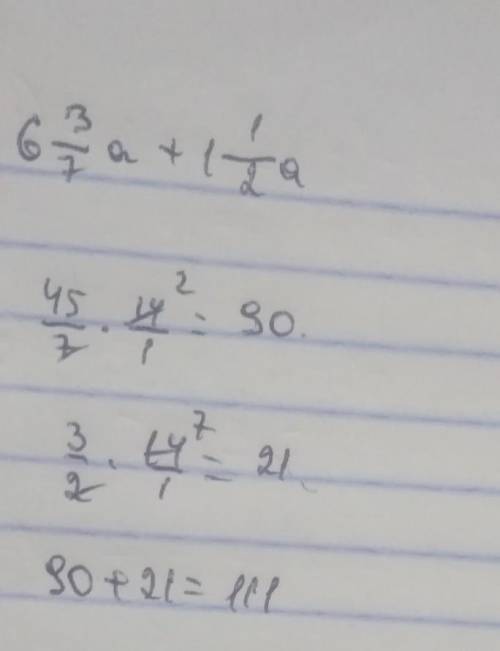 6 3/7 a + 1 1/2 a
45/7 · 14/1 2 = 90.
3/2 · 14/1 7 = 21.
90 + 21 = 111